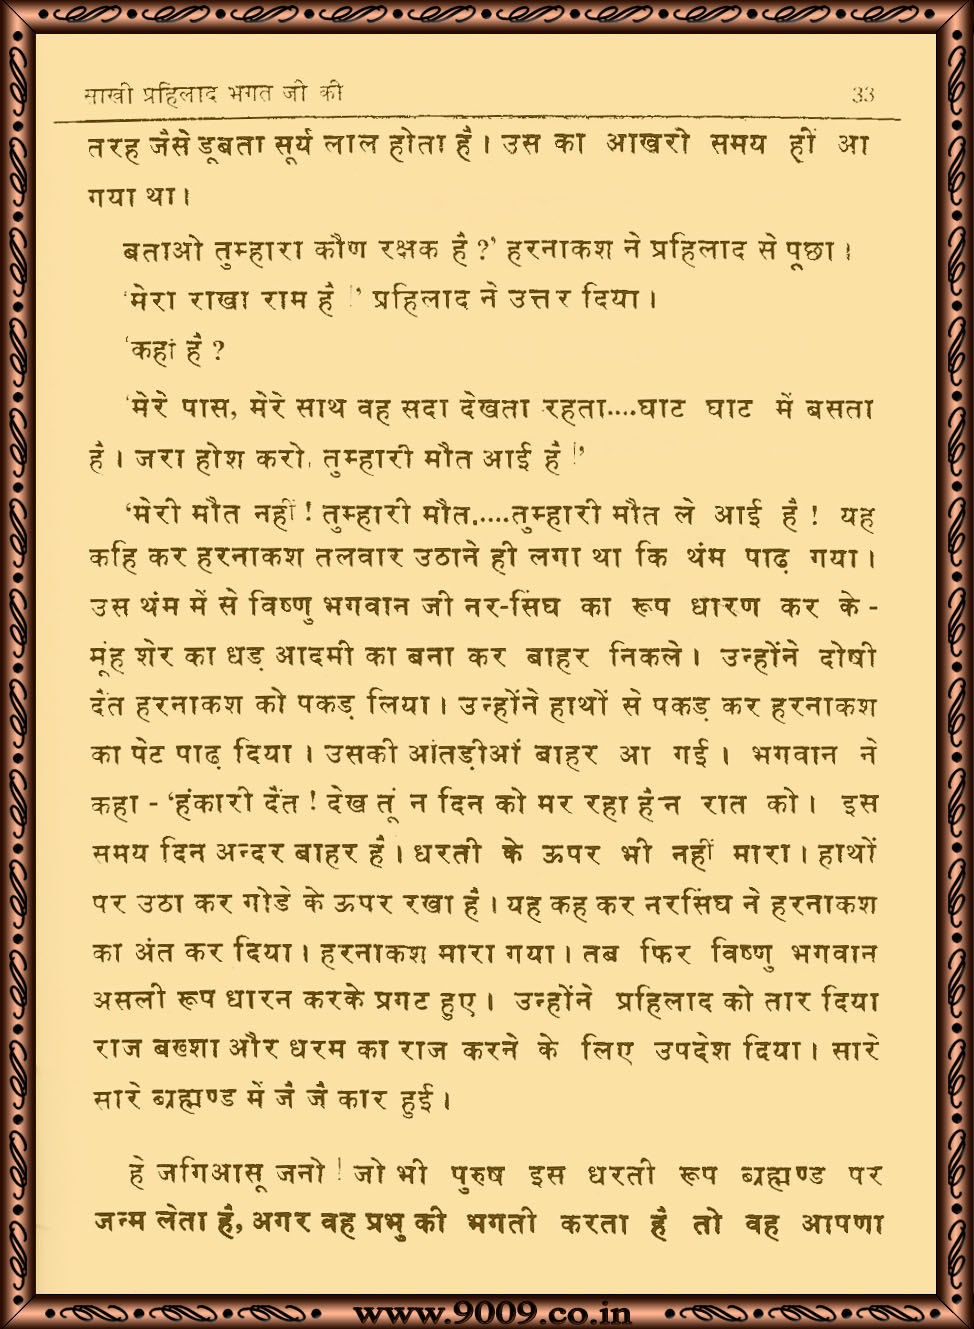 साखी प्रहिलाद भगत जी की 33
तरह जैसे डूबता सूर्य लाल होता है । उस का आखरी समय ही आ
गया था ।
बताओ तुम्हारा कौण रक्षक है ?’ हरनाकश ने प्रहिलाद से पूछा ।
‘मेरा राखा राम है !’ प्रहिलाद ने उत्तर दिया ।
‘कहां है ?
‘मेरे पास, मेरे साथ वह सदा देखता रहता....घाट घाट में बसता
है । जरा होश करो, तुम्हारी मौत आई है !’
‘मेरी मौत नहीं ! तुम्हारी मौत.....तुम्हारी मौत ले आई है ! यह
कहि कर हरनाकश तलवार उठाने ही लगा था कि थंम पाढ़ गया ।
उस थंम में से विष्णु भगवान जी नर-सिंघ का रूप धारण कर के -
मूंह शेर का धड़ आदमी का बना कर बाहर निकले । उन्होंने दोषी
दैंत हरनाकश को पकड़ लिया । उन्होंने हाथों से पकड़ कर हरनाकश
का पेट पाढ़ दिया । उसकी आंतड़ीआं बाहर आ गई । भगवान ने
कहा - ‘हंकारी दैंत ! देख तूं न दिन को मर रहा है न रात को । इस
समय दिन अन्दर बाहर है । धरती के ऊपर भी नहीं मारा । हाथों
पर उठा कर गोडे के ऊपर रखा है । यह कह कर नरसिंघ ने हरनाकश
का अंत कर दिया । हरनाकश मारा गया । तब फिर विष्णु भगवान
असली रूप धारन करके प्रगट हुए । उन्होंने प्रहिलाद को तार दिया
राज बख्शा और धरम का राज करने के लिए उपदेश दिया । सारे
सारे ब्रह्मण्ड में जै जै कार हुई ।
हे जगिआसू जनो ! जो भी पुरुष इस धरती रूप ब्रह्मण्ड पर
जन्म लेता है, अगर वह प्रभु की भगती करता है तो वह आपणा
www.9009.co.in